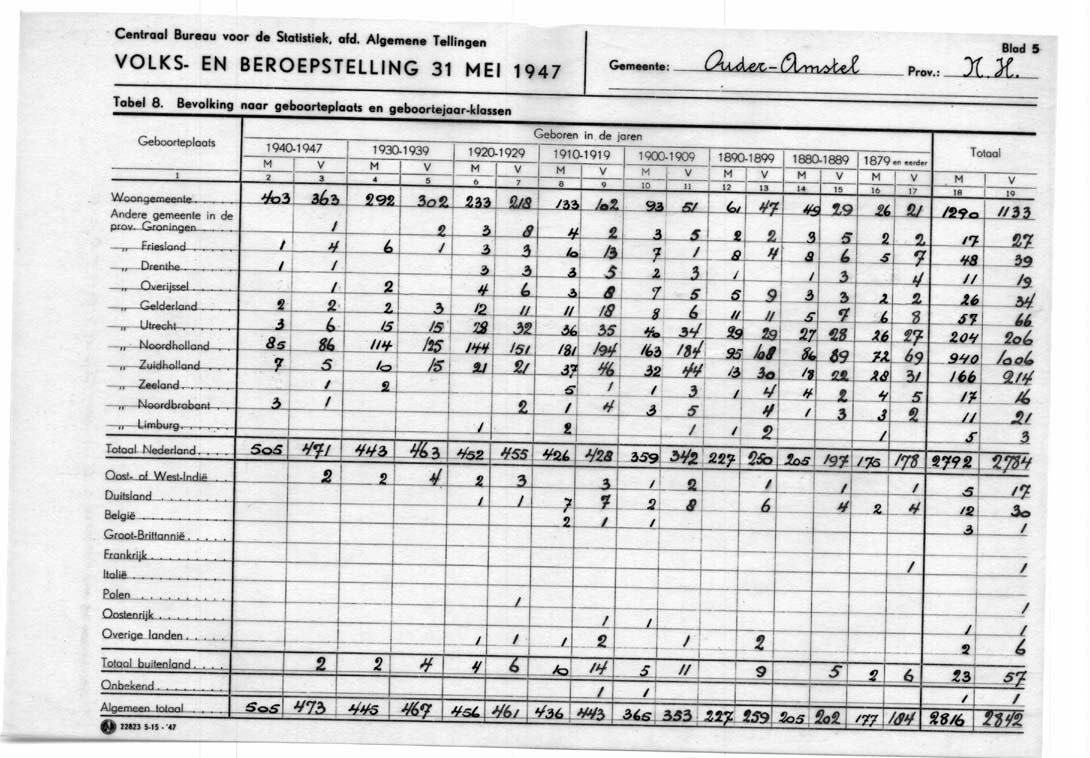 Centraal Bureau voor de Statistiek, afd. Algemene Tellingen
VOLKS- EN BEROEPSTELLING 31 MEI 1947
Gemeente: Ouder-Amstel Prov.: N.H.
Blad 5
Tabel 8. Bevolking naar geboorteplaats en geboortejaar-klassen
Geboorteplaats Geboren in de jaren Totaal
1940-1947 1930-1939 1920-1929 1910-1919 1900-1909 1890-1899 1880-1889 1879 en eerder
M V M V M V M V M V M V M V M V M V
1 2 3 4 5 6 7 8 9 10 11 12 13 14 15 16 17 18 19
Woongemeente 403 363 292 302 233 218 133 102 93 51 61 47 49 29 26 21 1290 1133
Andere gemeente in de
prov. Groningen 1 2 3 8 4 2 3 5 2 2 3 5 2 2 17 27
„ Friesland 1 4 6 1 3 3 10 13 7 1 8 4 8 6 5 7 48 39
„ Drenthe 1 1 3 3 3 5 2 3 1 1 3 4 11 19
„ Overijssel 1 2 4 6 3 8 7 5 5 9 3 3 2 2 26 34
„ Gelderland 2 2 2 3 12 11 11 18 8 6 11 11 5 7 6 8 57 66
„ Utrecht 3 6 15 15 28 32 36 35 40 34 29 29 27 28 26 27 204 206
„ Noordholland 85 86 114 125 144 151 181 194 163 184 95 108 86 89 72 69 940 1006
„ Zuidholland 7 5 10 15 21 21 37 46 32 44 13 30 18 22 28 31 166 214
„ Zeeland 1 2 5 1 1 3 1 4 4 2 4 5 17 16
„ Noordbrabant 3 1 2 1 4 3 5 4 1 3 3 2 11 21
„ Limburg 1 2 1 1 2 1 5 3
Totaal Nederland 505 471 443 463 452 455 426 428 359 342 227 250 205 197 175 178 2792 2784
Oost- of West-Indië 2 2 4 2 3 3 1 2 1 1 1 5 17
Duitsland 1 1 7 7 2 8 6 4 2 4 12 30
België 2 1 1 3 1
Groot-Brittannië
Frankrijk 1 1
Italië
Polen 1 1
Oostenrijk 1 1 1 1
Overige landen 1 1 1 2 1 2 2 6
Totaal buitenland 2 2 4 4 6 10 14 5 11 9 5 2 6 23 57
Onbekend 1 1 1 1
Algemeen totaal 505 473 445 467 456 461 436 443 365 353 227 259 205 202 177 184 2816 2842
22823 5-15-'47